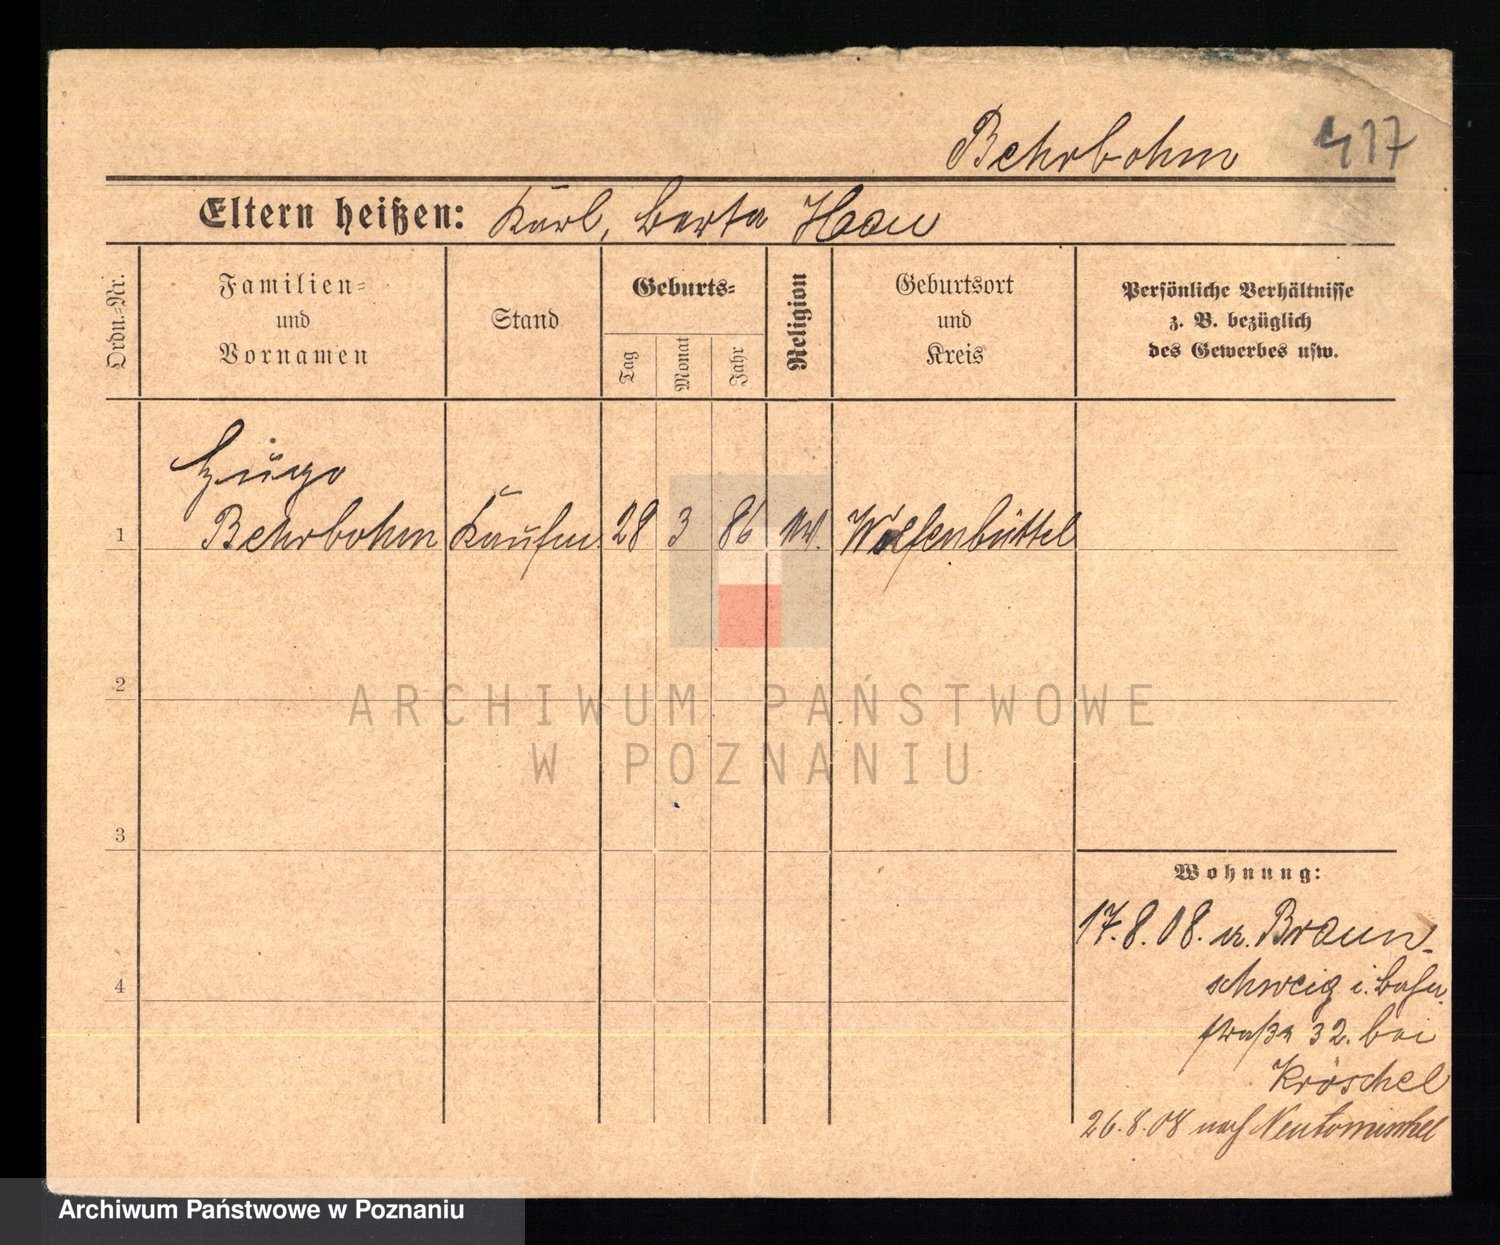 Behrbohm 417
Eltern heißen: Karl, Berta Hau
Ordn.-Nr.
Familien-
und
Vornamen
Stand
Geburts-
Tag
Monat
Jahr
Religion
Geburtsort
und
Kreis
Persönliche Verhältnisse
z. B. bezüglich
des Gewerbes usw.
Hugo
1 Behrbohm Kaufm. 28 3 86 Wolfenbüttel
2
3
4
Wohnung:
17.8.08. Braun-
schweig i.
straße 32. bei
Kröschel
26.8.08 nach Neutomischel
ARCHIWUM PAŃSTWOWE
W POZNANIU
Archiwum Państwowe w Poznaniu